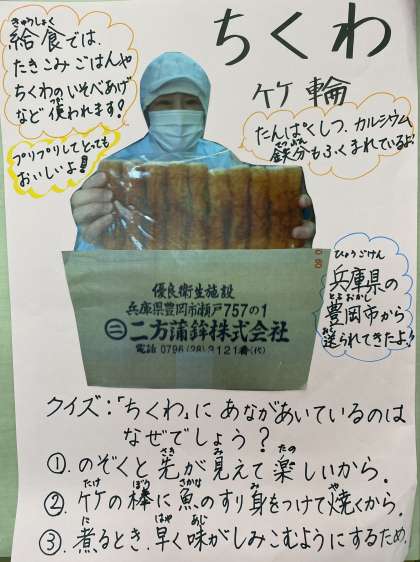 ちくわ
竹輪
きゅうしょく
給食では、
たきこみごはんや
ちくわのいそべあげ
など使われます!
つか
プリプリしてとっても
おいしいよ!!
たんぱくしつ、カルシウム
てつぶん
鉄分もふくまれているよ
優良衛生施設
兵庫県豊岡市瀬戸757の1
㊁二方蒲鉾株式会社
電話 0796(28)2121番(代)
ひょうごけん
兵庫県の
とよおかし
豊岡市から
おく
送られてきたよ!
クイズ:「ちくわ」にあながあいているのは
なぜでしょう?
さき み たの
①.のぞくと先が見えて楽しいから。
たけ ぼう さかな み や
②.竹の棒に魚のすり身をつけて焼くから。
に はや あじ
③.煮るとき、早く味がしみこむようにするため。